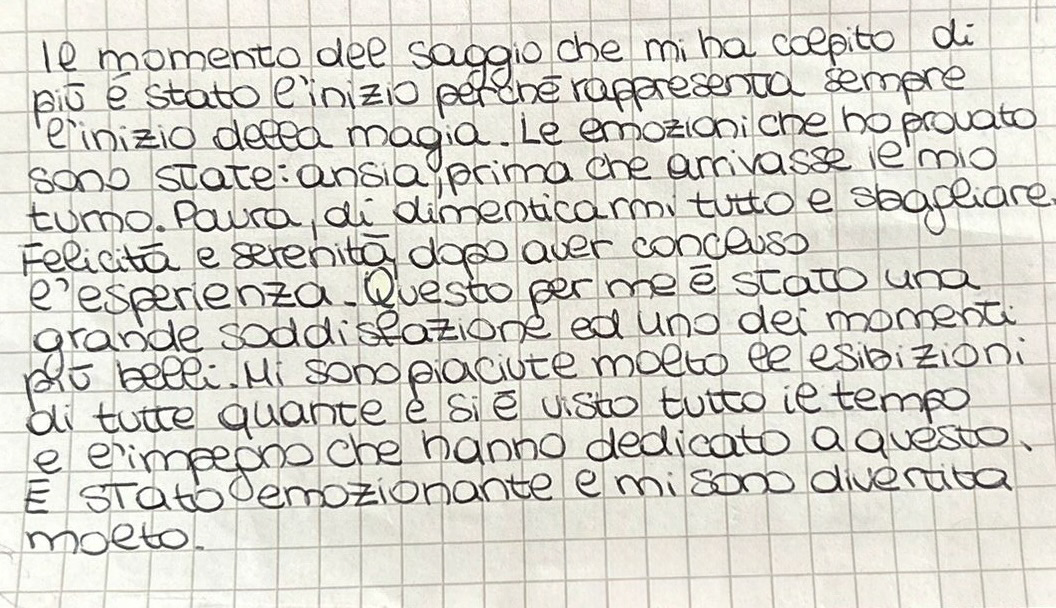 Il momento del saggio che mi ha colpito di
più è stato l'inizio perchè rappresenta sempre
l'inizio della magia. Le emozioni che ho provato
sono state: ansia, prima che arrivasse il mio
turno. Paura, di dimenticarmi tutto e sbagliare.
Felicità e serenità, dopo aver concluso
l'esperienza. Questo per me è stato una
grande soddisfazione ed uno dei momenti
più belli. Mi sono piaciute molto le esibizioni
di tutte quante e si è visto tutto il tempo
e l'impegno che hanno dedicato a questo.
È stato emozionante e mi sono divertita
molto.